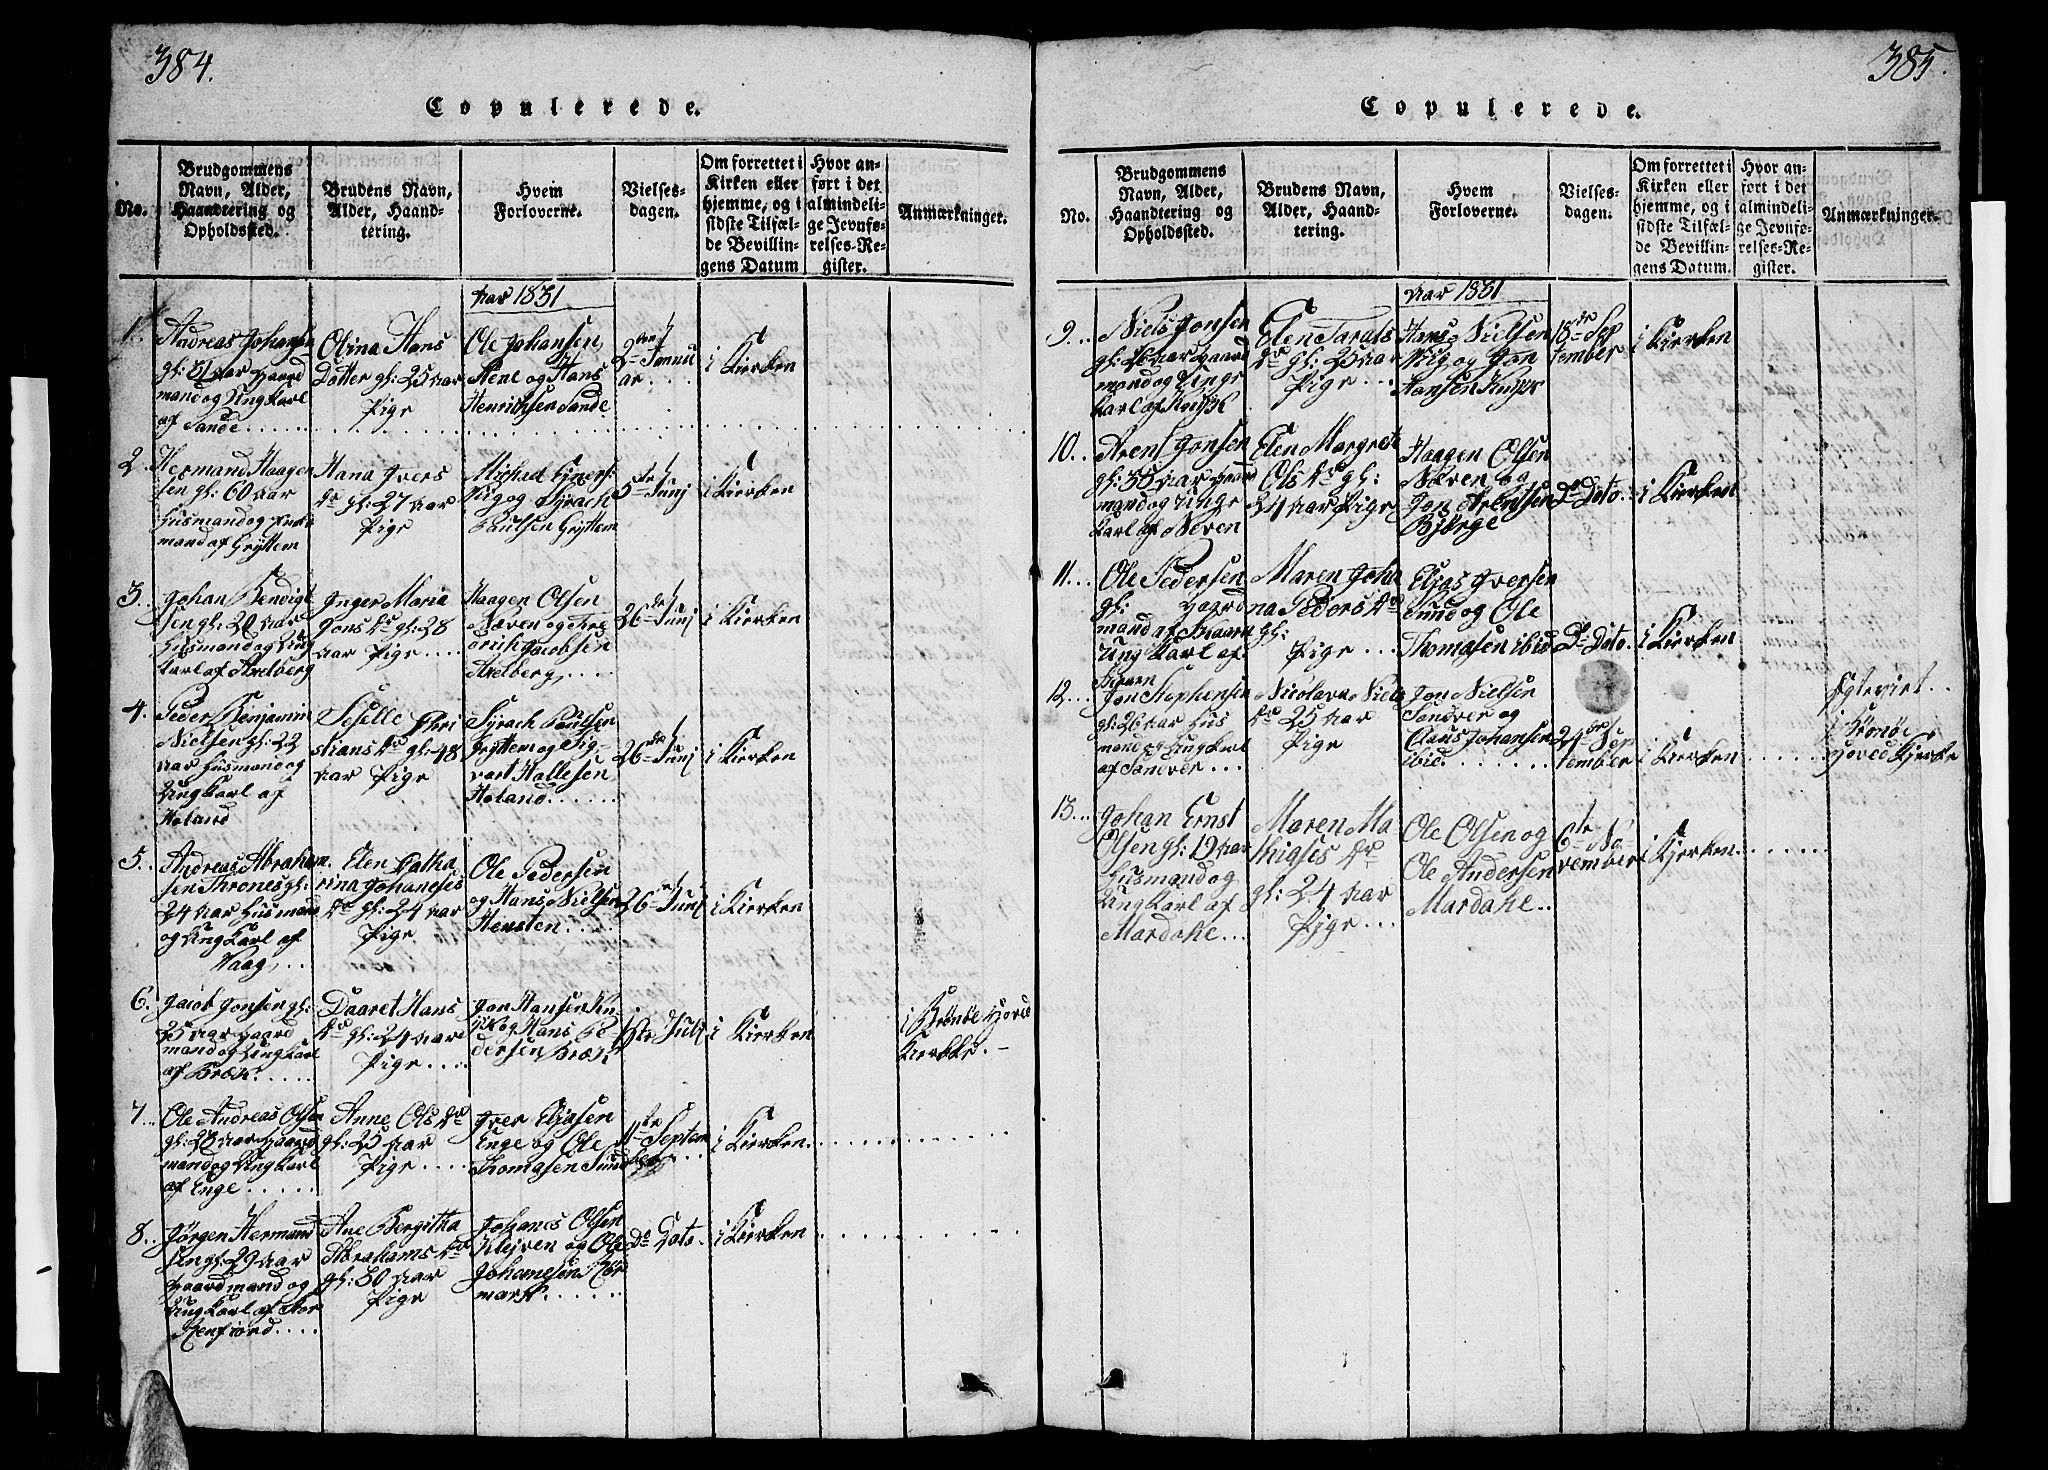 384.
Copulerede.
No.
Brudgommens
Navn, Alder,
Haandtering og
Opholdssted.
Brudens Navn,
Alder, Haand-
tering.
Hvem
Forloverne.
Vielses-
dagen.
Om forrettet i
Kirken eller
hjemme, og i
sidste Tilfæl-
de Bevillin-
gens Datum
Hvor an-
ført i det
almindeli-
ge Jevnfø-
relses-Re-
gister.
Anmærkninger.
Aar 1831
1.
Andreas Johansen
gl: 31 Aar Gaard
mand og Ungkarl
af Sande
Olina Hans
Dotter gl: 25 Aar
Pige
Ole Johansen
Stene og Hans
Henrichsen Sande
2den Janu
ar
i Kierken
2.
Hermand Haagen
sen gl: 60 Aar
Husmand og Enke
mand af Gryttem
Hana Ivers
Dr gl: 27 Aar
Pige
Michael
Vig og Syrach
Paulsen Gryttem
5te Junj
i Kierken
3.
Johan Bendigt
sen gl: 20 Aar
Husmand og Ung
karl af Axelberg
Inger Maria
Jons Dr gl: 28
Aar Pige
Haagen Olsen
Næven og Fre
drich Jacobsen
Axelberg
26de Junj
i Kierken
4.
Peder Benjamin
Nielsen gl: 22
Aar Husmand og
Ungkarl af
Holand
Seselle Chri
stians Dr gl: 48
Aar Pige
Syrach Paulsen
Gryttem og Sig
vart Hallesen
Holand
26de Junj
i Kierken
5.
Andreas Abraham
sen Thrones gl:
24 Aar Husmand
og Ungkarl af
Vaag
Elen Catha
rina Johaneses
Dr gl: 24 Aar
Pige
Ole Pedersen
og Hans Nielsen
Hensten
26de Junj
i Kierken
6.
Jacob Jonsen gl:
25 Aar Gaard
mand og Ungkarl
af Bræk
Daaret Hans
Dr gl: 24 Aar
Pige
Jon Hansen
og Hans Pe
dersen Bræk
1ste Julj
i Kierken
i Brønøe Hoved
Kierkke.
7.
Ole Andreas Olsen
gl: 28 Aar Gaard
mand og Ungkarl
af Enge
Anne Ols Dr
gl: 25 Aar
Pige
Iver Eljasen
Enge og Ole
Thomasen Sund
11te Septem
ber
i Kierken
8.
Jørgen Hermand
sen gl: 29 Aar
Gaardmand og
Ungkarl af Stor
Ane Bergitha
Abrahams Dr
gl: 30 Aar
Pige
Johanes Olsen
Klejven og Ole
Johanesen Mør
mark
Do Dato
i Kierken
385.
Copulerede.
No.
Brudgommens
Navn, Alder,
Haandtering og
Opholdssted.
Brudens Navn,
Alder, Haand-
tering.
Hvem
Forloverne.
Vielses-
dagen.
Om forrettet i
Kirken eller
hjemme, og i
sidste Tilfæl-
de Bevillin-
gens Datum.
Hvor an-
ført i det
almindeli-
ge Jevnfø-
relses-Re-
gister.
Anmærkninger.
Aar 1831
9.
Niels Jonsen
gl: 26 Aar Gaard
mand og Unge
karl af
Elen Taralds
Dr gl: 25 Aar
Pige
Hans Nielsen
Vig og Jon
Hansen
18de Sep
tember
i Kierken
10.
Arent Jonsen
gl: 35 Aar Gaard
mand og Unge
karl af Næven
Elen Margrete
Ols Dr gl:
34 Aar Pige
Haagen Olsen
Næven og
Jon Arentsen
Bjørge
Do Dato
i Kierken
11.
Ole Pedersen
gl: Gaard
mand af Skaarn
Ung karl af
Skaarn
Maren Joha
na Peders Dr
gl:
Pige
Eljas Iversen
Sund og Ole
Thomasen ibid
Do Dato.
i Kierken
12.
Jon Stephensen
gl: 26 Aar Hus
mand og Ungkarl
af Sandver
Nicolava Niels
Dr 25 Aar
Pige
Jon Nielsen
Sandver og
Claus Johansen
ibid.
24de Sep
tember
i Kierken
Egteviet
i Brønøe
Hoved Kjerke
13.
Johan Ernst
Olsen gl: 19 Aar
Husmand og
Ungkarl af
Mardahl
Maren Ma
thigses Dr
gl: 24 Aar
Pige
Ole Olsen og
Ole Andersen
Mardahl
6te No
vember
i Kjerken